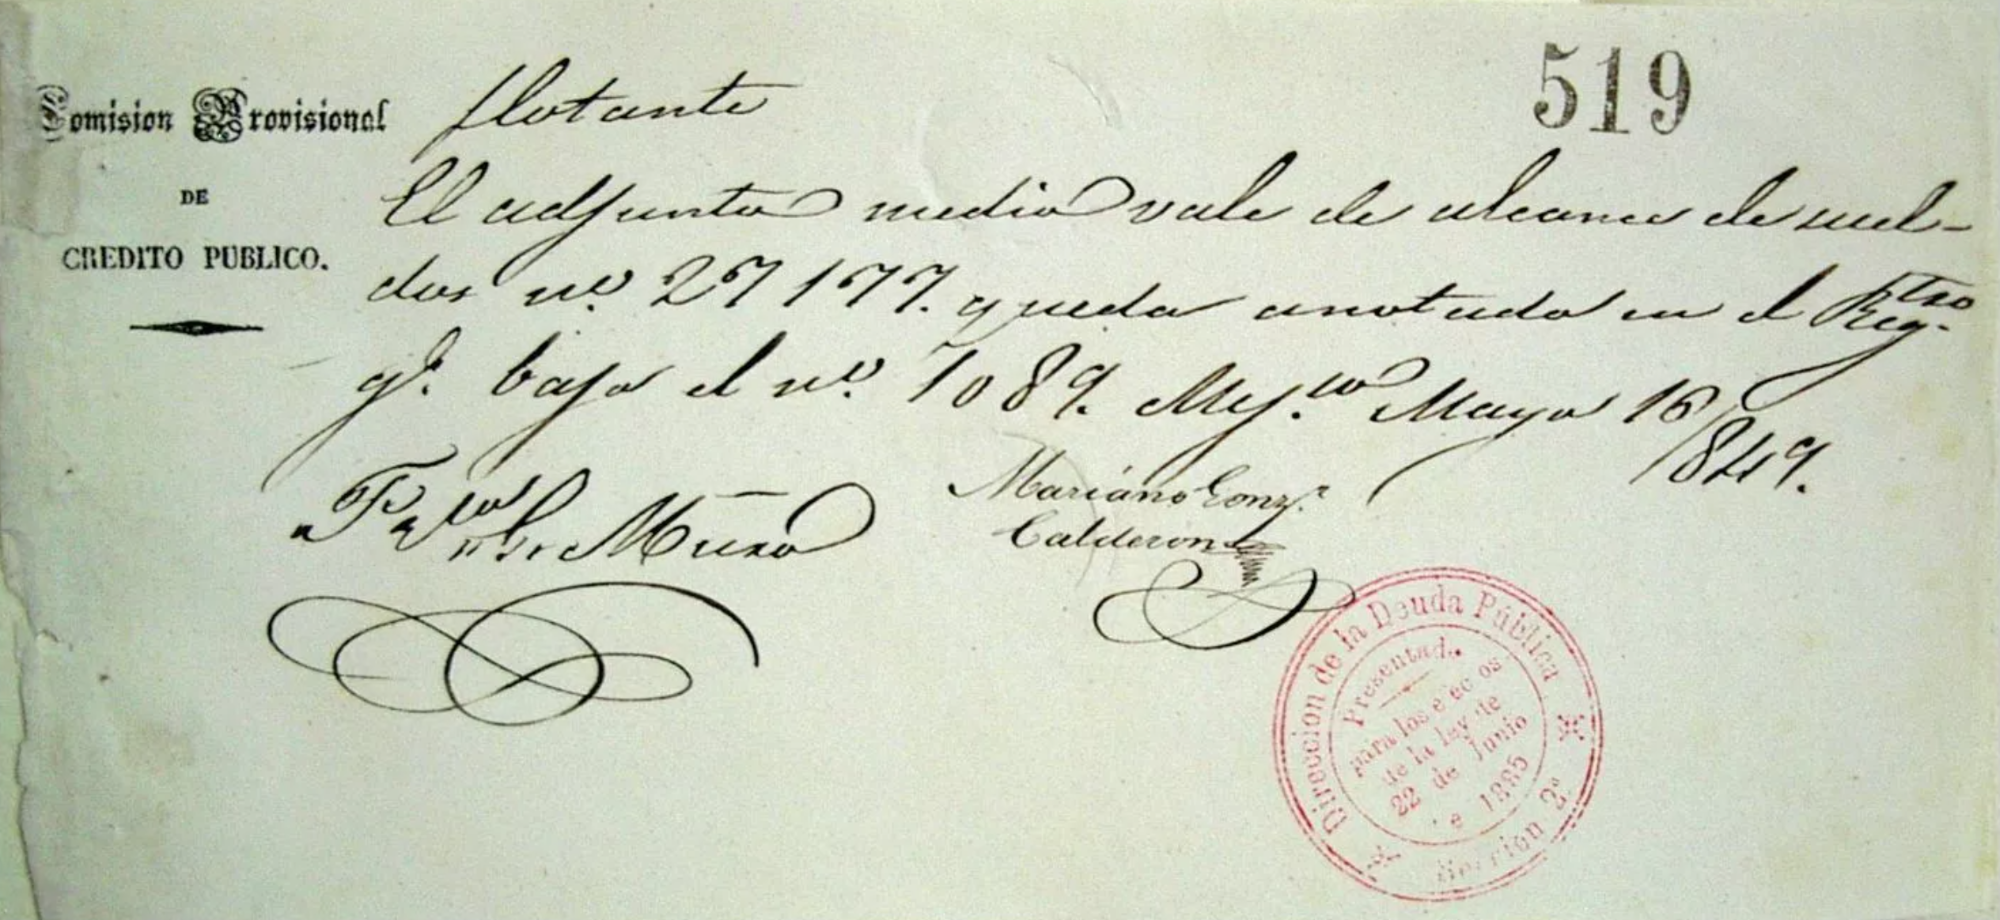 519
Comision Provisional
DE
CREDITO PUBLICO.
flotante
El adjunto medio vale de alcance de suel-
dos nº 27177. queda anotado en el Regtro
gl. bajo el nº 7089. Mejco Mayo 16/849.
Franco Muro
Mariano Gonz.
Calderon
Direccion de la Deuda Pública
Seccion 2ª
Presentad.
para los efec os
de la ley de
22 de Junio
e 1885